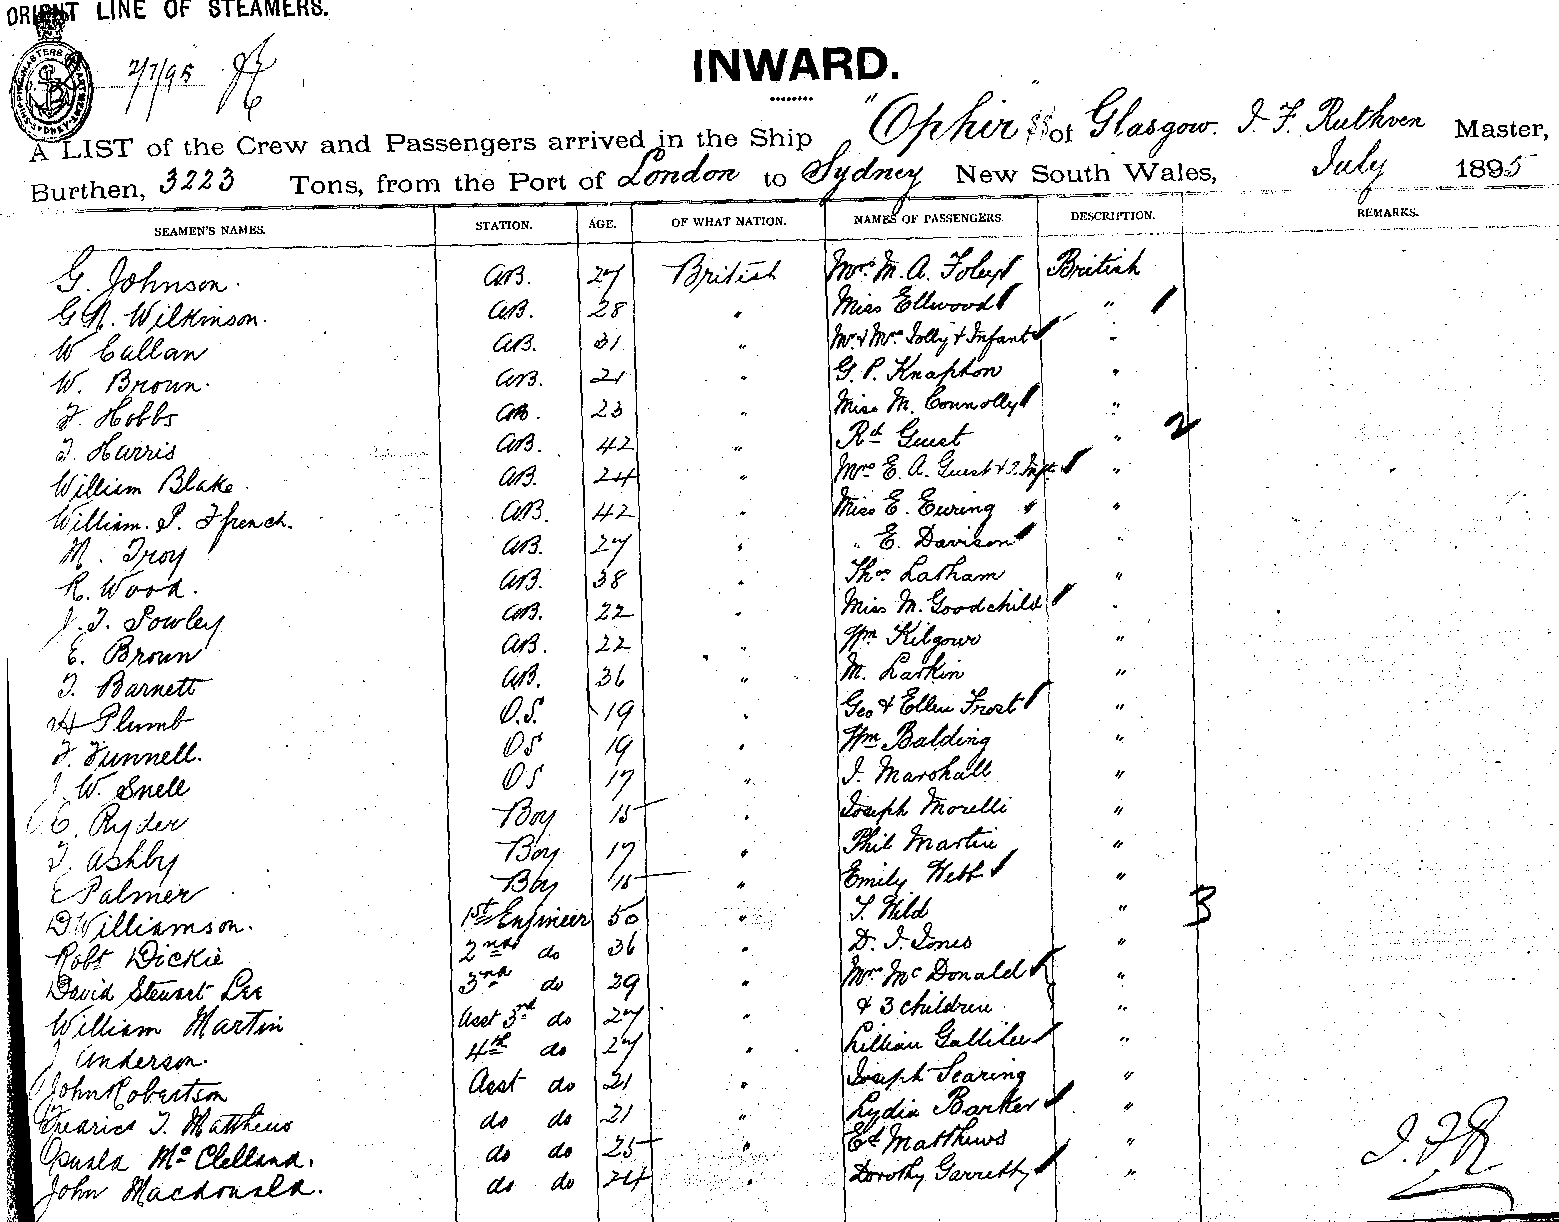 ORIENT LINE OF STEAMERS.
2/7/95
INWARD.
A LIST of the Crew and Passengers arrived in the Ship "Ophir" SS of Glasgow. J. F. Ruthven Master,
Burthen, 3223 Tons, from the Port of London to Sydney New South Wales, July 1895
SEAMEN'S NAMES. STATION. AGE. OF WHAT NATION. NAMES OF PASSENGERS. DESCRIPTION. REMARKS.
G. Johnson. AB. 27 British Mrs. M. A. Foley British
G. R. Wilkinson. AB. 28 " Miss Ellwood " 1
W Callan AB. 31 " Mr. & Mrs. Jolly & Infant "
W. Brown. AB. 21 " G. P. Knapton "
F. Hobbs AB. 23 " Miss M. Connolly "
T. Harris AB. 42 " Rd Guest " 2
William Blake. AB. 24 " Mrs E. A. Guest & Inft. "
William. P. Ffrench. AB. 42 " Miss E. Euring "
M. Troy AB. 27 " " E. Davison
R. Wood. AB. 38 " Thos Latham "
J. T. Powley AB. 22 " Miss M. Goodchild "
E. Brown AB. 22 " Wm Kilgour "
T. Barnett AB. 36 " M. Larkin "
H Plumb O.S. 19 " Geo & Ellen Frost "
F. Funnell. OS 19 " Wm Balding "
J. W. Snell OS 17 " J. Marshall "
C. Ryder Boy 15 " Joseph Morelli "
T. Ashby Boy 17 " Phil Martin "
E Palmer Boy 15 " Emily Webb "
D Williamson. 1st Engineer 50 " T. Wild " 3
Robt Dickie 2nd do 36 " D. J. Jones "
David Stewart Lee 3rd do 29 " Mrs McDonald "
William Martin Asst 3rd do 27 " & 3 children "
J Anderson. 4th do 27 " Lillian Gallilee "
John Robertson Asst do 21 " Joseph Searing "
Fredrick T. Matthews do do 21 " Lydia Barker "
McClelland. do do 25 " Ed Matthews "
John Macdonald. do do 24 " Dorothy Garretty "
J. F. R